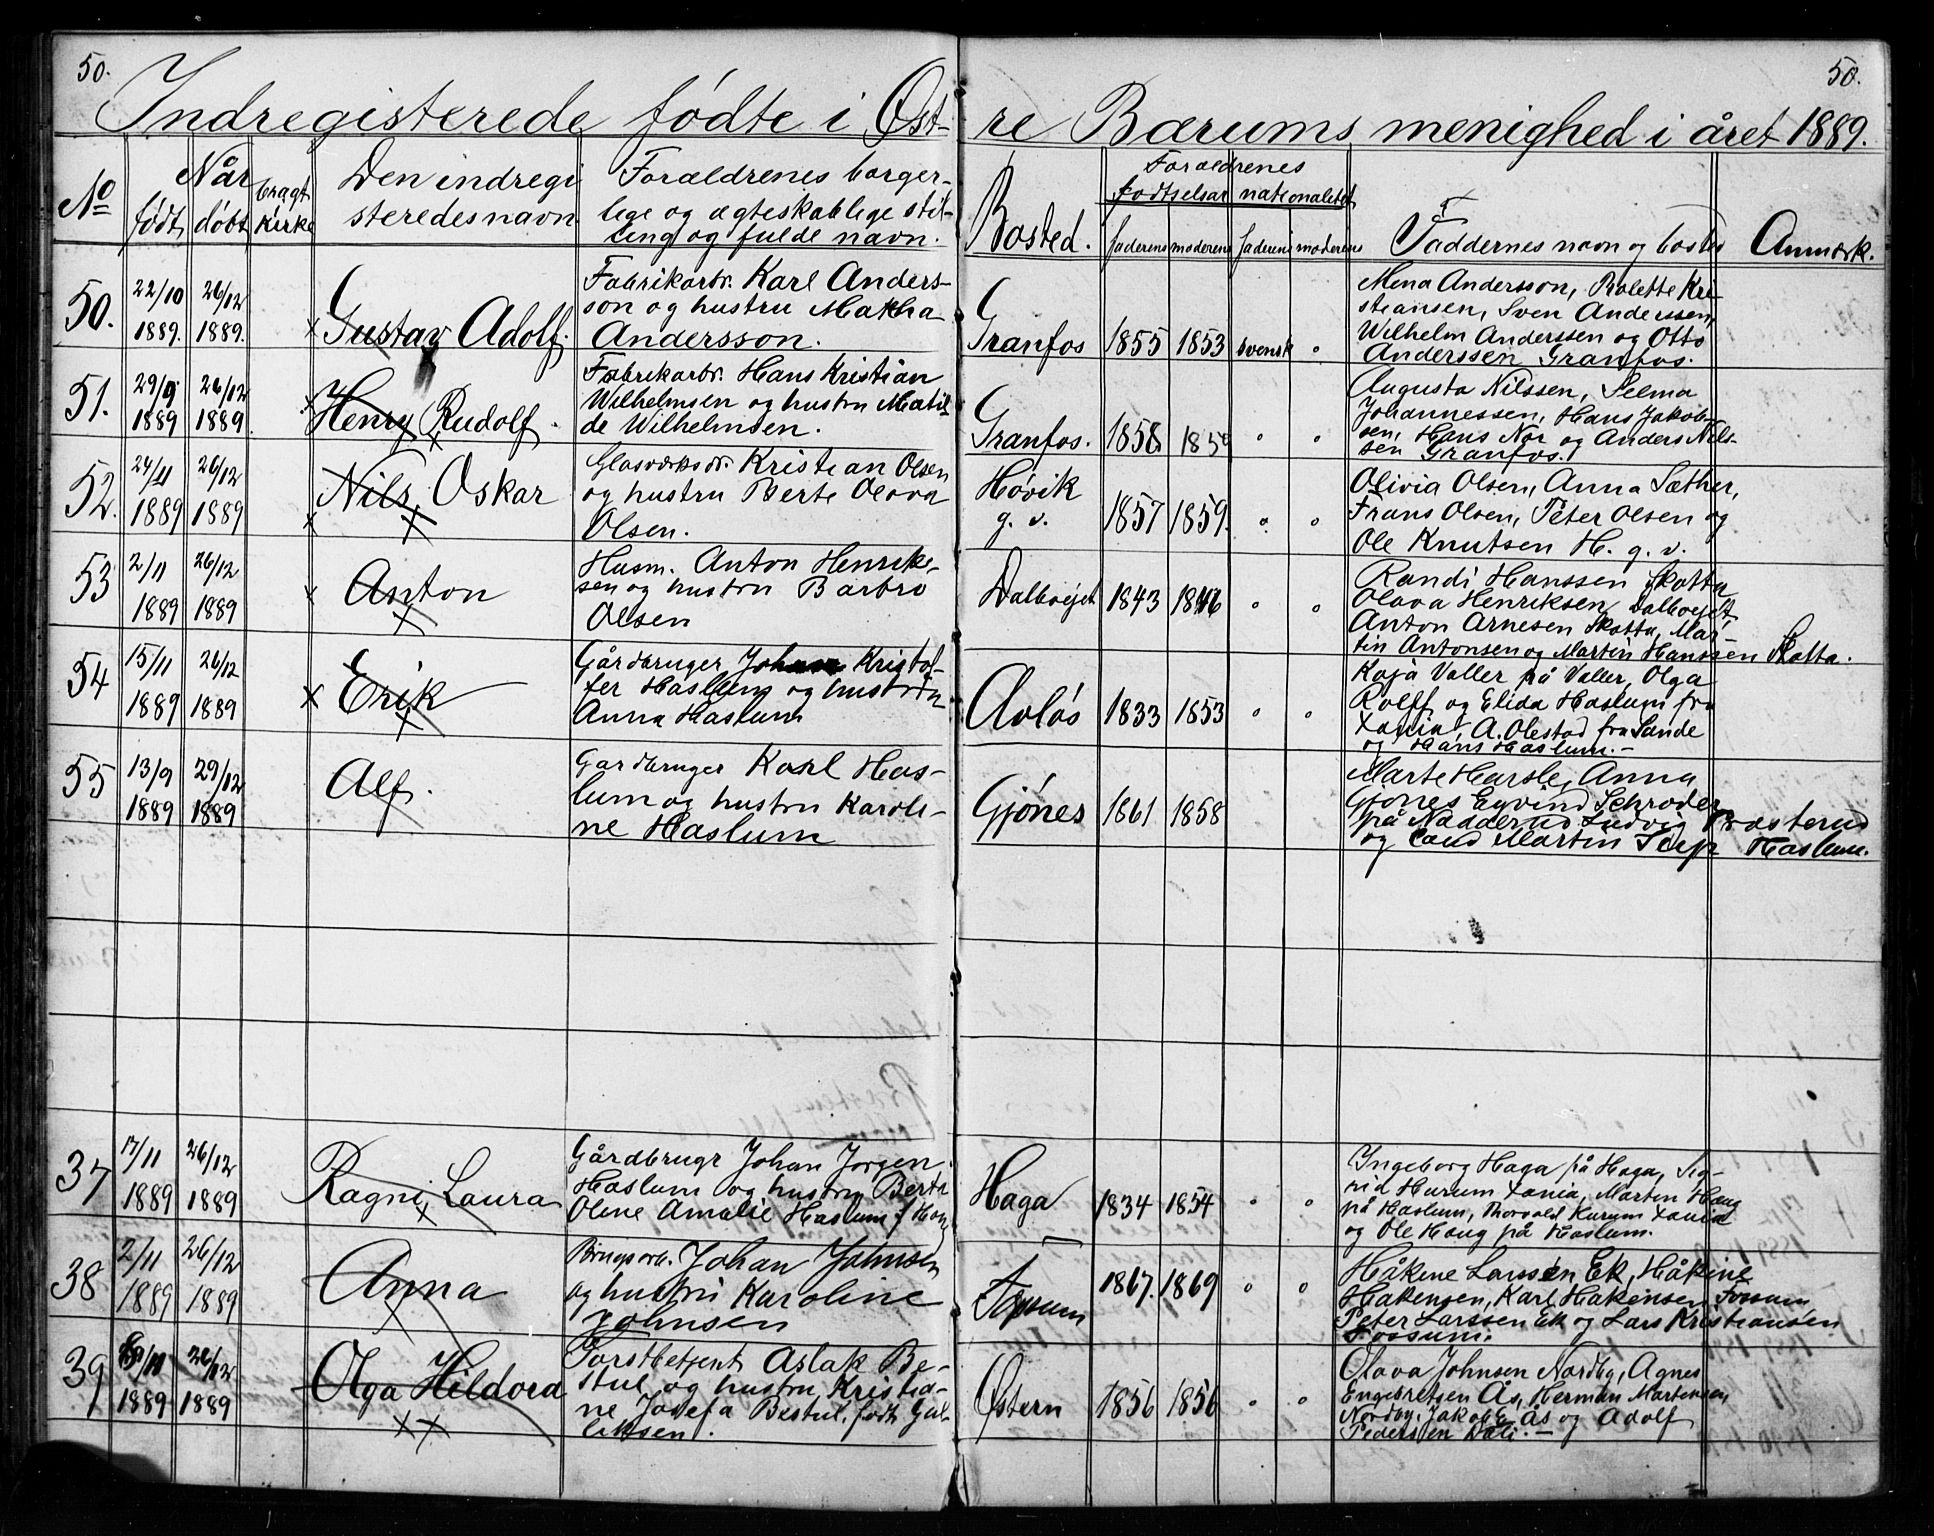 50. 50.
Indregisterede fødte i Øst- re Bærums menighed i året 1889.
No
Når
født døbt
bragt kirke
Den indregi
steredes navn
Forældrenes borger-
lige og ægteskablige stil-
ling og fulde navn.
Bosted.
Forældrenes
fødselsår nationalitet
faderens moderens faderens moderens
Faddernes navn og bosted
Anmærk.
50.
22/10 26/12
1889. 1889.
Gustav Adolf.
Fabrikarb. Karl Anders-
son og hustru
Andersson.
Granfos 1855 1853 svensk "
Mena Andersson, Bolette Kri-
stiansen, Sven Anderssen,
Wilhelm Anderssen og Otto
Anderssen Granfos.
51.
29/9 26/12
1889 1889
Henry Rudolf.
Fabrikarb. Hans Kristian
Wilhelmsen og hustru Matil-
de Wilhelmsen.
Granfos. 1858 " "
Augusta Nilssen, Selma
Johannessen, Hans Jakob-
sen, Hans Nor og Anders Nils-
sen Granfos.
52.
24/11 26/12
1889 1889
Nils Oskar
Glasværksarb. Kristian Olsen
og hustru Berte Olava
Olsen.
Høvik
g. v. 1857 1859. " "
Olivia Olsen, Anna Sæther,
Frans Olsen, Peter Olsen og
Ole Knutsen H. g. v.
53
2/11 26/12
1889 1889
Anton
Husm. Anton Henrik-
sen og hustru Barbro
Olsen
Dalbvejet 1843 1846 " "
Randi Hanssen Skotta
Olava Henriksen, Dalbvejet,
Anton Arnesen Skotta, Mar-
tin Antonsen og Martin Hanssen Skotta.
54
15/11 26/12
1889 1889
Erik
Gårdbruger Johan Kristof-
fer Haslum og hustru
Anna Haslum
Avløs 1833 1853 " "
Kaja Valler på Valler, Olga
Rolff og Elida Haslum fra
Xania, A. Olestad fra Sande
og Hans Haslum.-
55
13/9 29/12
1889 1889
Alf.
Gardbruger Karl Has-
lum og hustru Karoli-
ne Haslum
Gjónes 1861 1858
Marte Harsle, Anna
Gjónes Eyvind Schrøder
på Nadderud Ludvig Prosterud
og Cand Martin Haslum.
37
17/11 26/12
1889 1889
Ragni Laura
Gårdbrugr Johan Jørgen
Haslum og hustru Berte
Oline Amalie Haslum f. Haug
Haga 1834 1854 " "
Ingeborg Haga på Haga, Sig-
rid Hurum Xania, Martin Haug
på Haslum, Thorvald Hurum Xania
og Ole Haug på Haslum.
38
2/11 26/12
1889 1889
Anna
Brugsarb. Johan Johnsen
og hustru Karoline
Johnsen
Fossum 1867. 1869 " "
Håkene Larssen Ek, Håkine
Håkensen, Karl Håkensen Fossum
Peter Larssen Ek og Lars Kristiansen
Fossum.
39
26/12
1889 1889
Olga Hildora
Forstbetjent Aslak Be-
stul og hustru Kristia-
ne Josefa Bestul, født Gul-
liksen.
Østern 1856 1856 " "
Olava Johnsen Nordby, Agnes
Engebretsen Ås, Herman Martensen,
Nordby, Jakob E Ås og Adolf
Pedersen Dæli.-